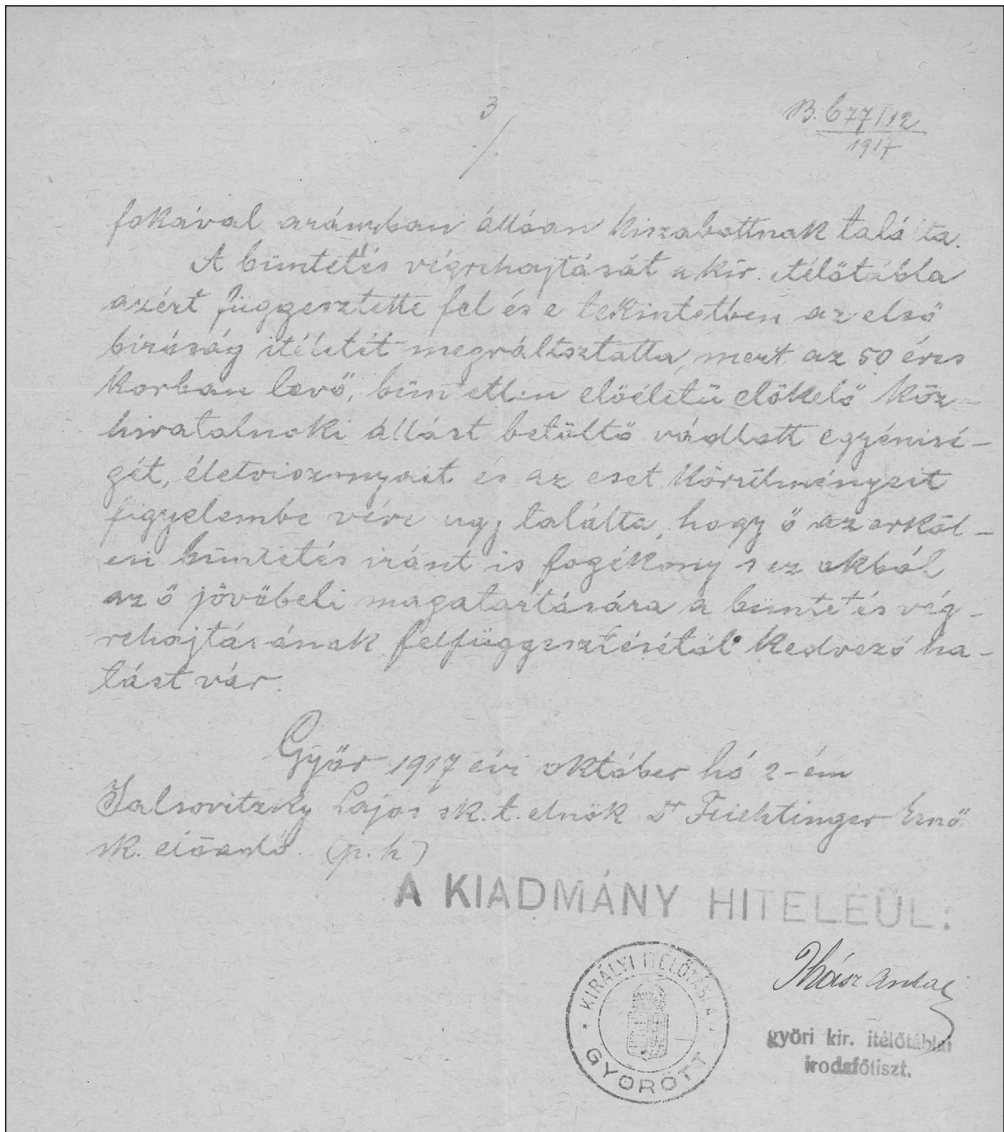 3
/.
B. 677/12
1917
fokával arányban állóan kiszabottnak találta.
A büntetés végrehajtását a kir. itélőtábla
azért függesztette fel és e tekintetben az első
biróság itéletét megváltoztatta, mert az 50 éves
korban levő, büntetlen előéletü előkelő köz-
hivatalnoki állást betöltő vádlott egyénisé-
gét, életviszonyait és az eset körülményeit
figyelembe véve ugy találta, hogy ő az erköl-
csi büntetés iránt is fogékony s ez okból
az ő jövőbeli magatartására a büntetés vég-
rehajtásának felfüggesztésétöl kedvező ha-
tást vár.
Győr 1917 évi október hó 2-ém
Jalsovitzky Lajos sk. t. elnök Dr Feichtinger Ernő
sk. előadó. (p. h)
A KIADMÁNY HITELÉÜL:
KIRÁLYI ITÉLŐTÁBLA
GYŐRÖTT
győri kir. itélőtáblai
irodafőtiszt.